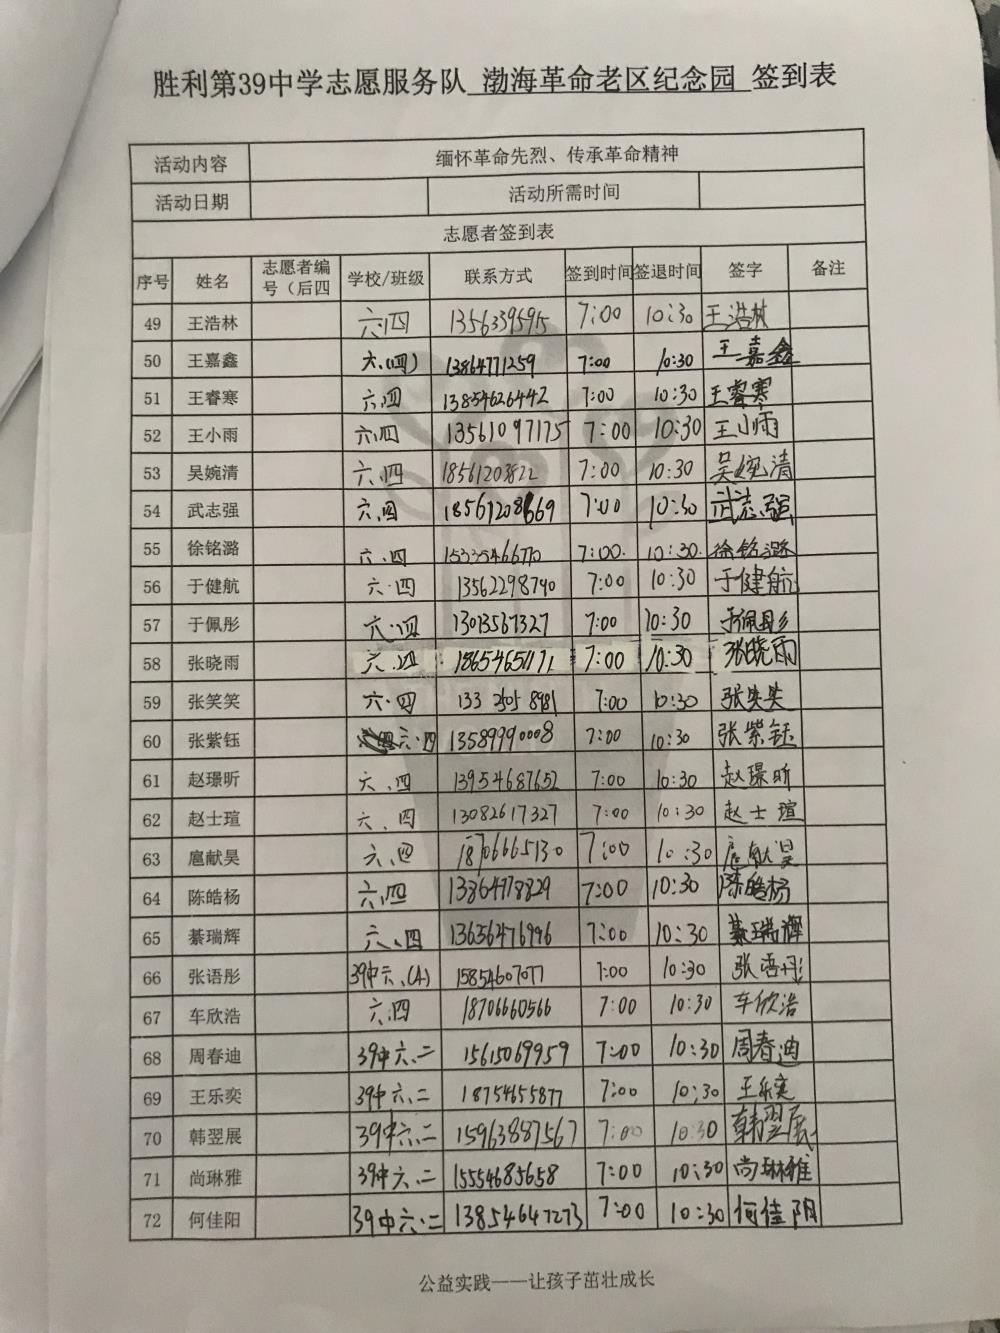 胜利第39中学志愿服务队 渤海革命老区纪念园 签到表
活动内容 缅怀革命先烈、传承革命精神
活动日期 活动所需时间
志愿者签到表
序号 姓名 志愿者编号（后四 学校/班级 联系方式 签到时间 签退时间 签字 备注
49 王浩林 六.四 13563395915 7:00 10:30 王浩林
50 王嘉鑫 六.(四) 13864771259 7:00 10:30 王嘉鑫
51 王睿寒 六.四 13854626442 7:00 10:30 王睿寒
52 王小雨 六.四 13561097175 7:00 10:30 王小雨
53 吴婉清 六.四 18561203822 7:00 10:30 吴婉清
54 武志强 六.四 7:00 10:30 武志强
55 徐铭潞 六.四 15335466770 7:00. 10:30. 徐铭潞
56 于健航 六.四 13562298740 7:00 10:30 于健航
57 于佩彤 六.四 13013567327 7:00 10:30 于佩彤
58 张晓雨 六.四 18654651171 7:00 10:30 张晓雨
59 张笑笑 六.四 133 2505 8981 7:00 10:30 张笑笑
60 张紫钰 六.四 13589990008 7:00 10:30 张紫钰
61 赵璟昕 六.四 13954687652 7:00 10:30 赵璟昕
62 赵士瑄 六.四 13082617327 7:00 10:30 赵士瑄
63 扈献昊 六.四 18706665130 7:00 10:30 扈献昊
64 陈皓杨 六.四 13864778829 7:00 10:30 陈皓杨
65 綦瑞辉 六.四 13656476996 7:00 10:30 綦瑞辉
66 张语彤 39中六.(4) 15854607077 7:00 10:30 张语彤
67 车欣浩 六.四 18706660566 7:00 10:30 车欣浩
68 周春迪 39中六.二 15615069959 7:00 10:30 周春迪
69 王乐奕 39中六.二 18754655877 7:00 10:30 王乐奕
70 韩翌展 39中六.二 15963887567 7:00 10:30 韩翌展
71 尚琳雅 39中六.二 15554685658 7:00 10:30 尚琳雅
72 何佳阳 39中六.二 13854647273 7:00 10:30 何佳阳
公益实践——让孩子茁壮成长